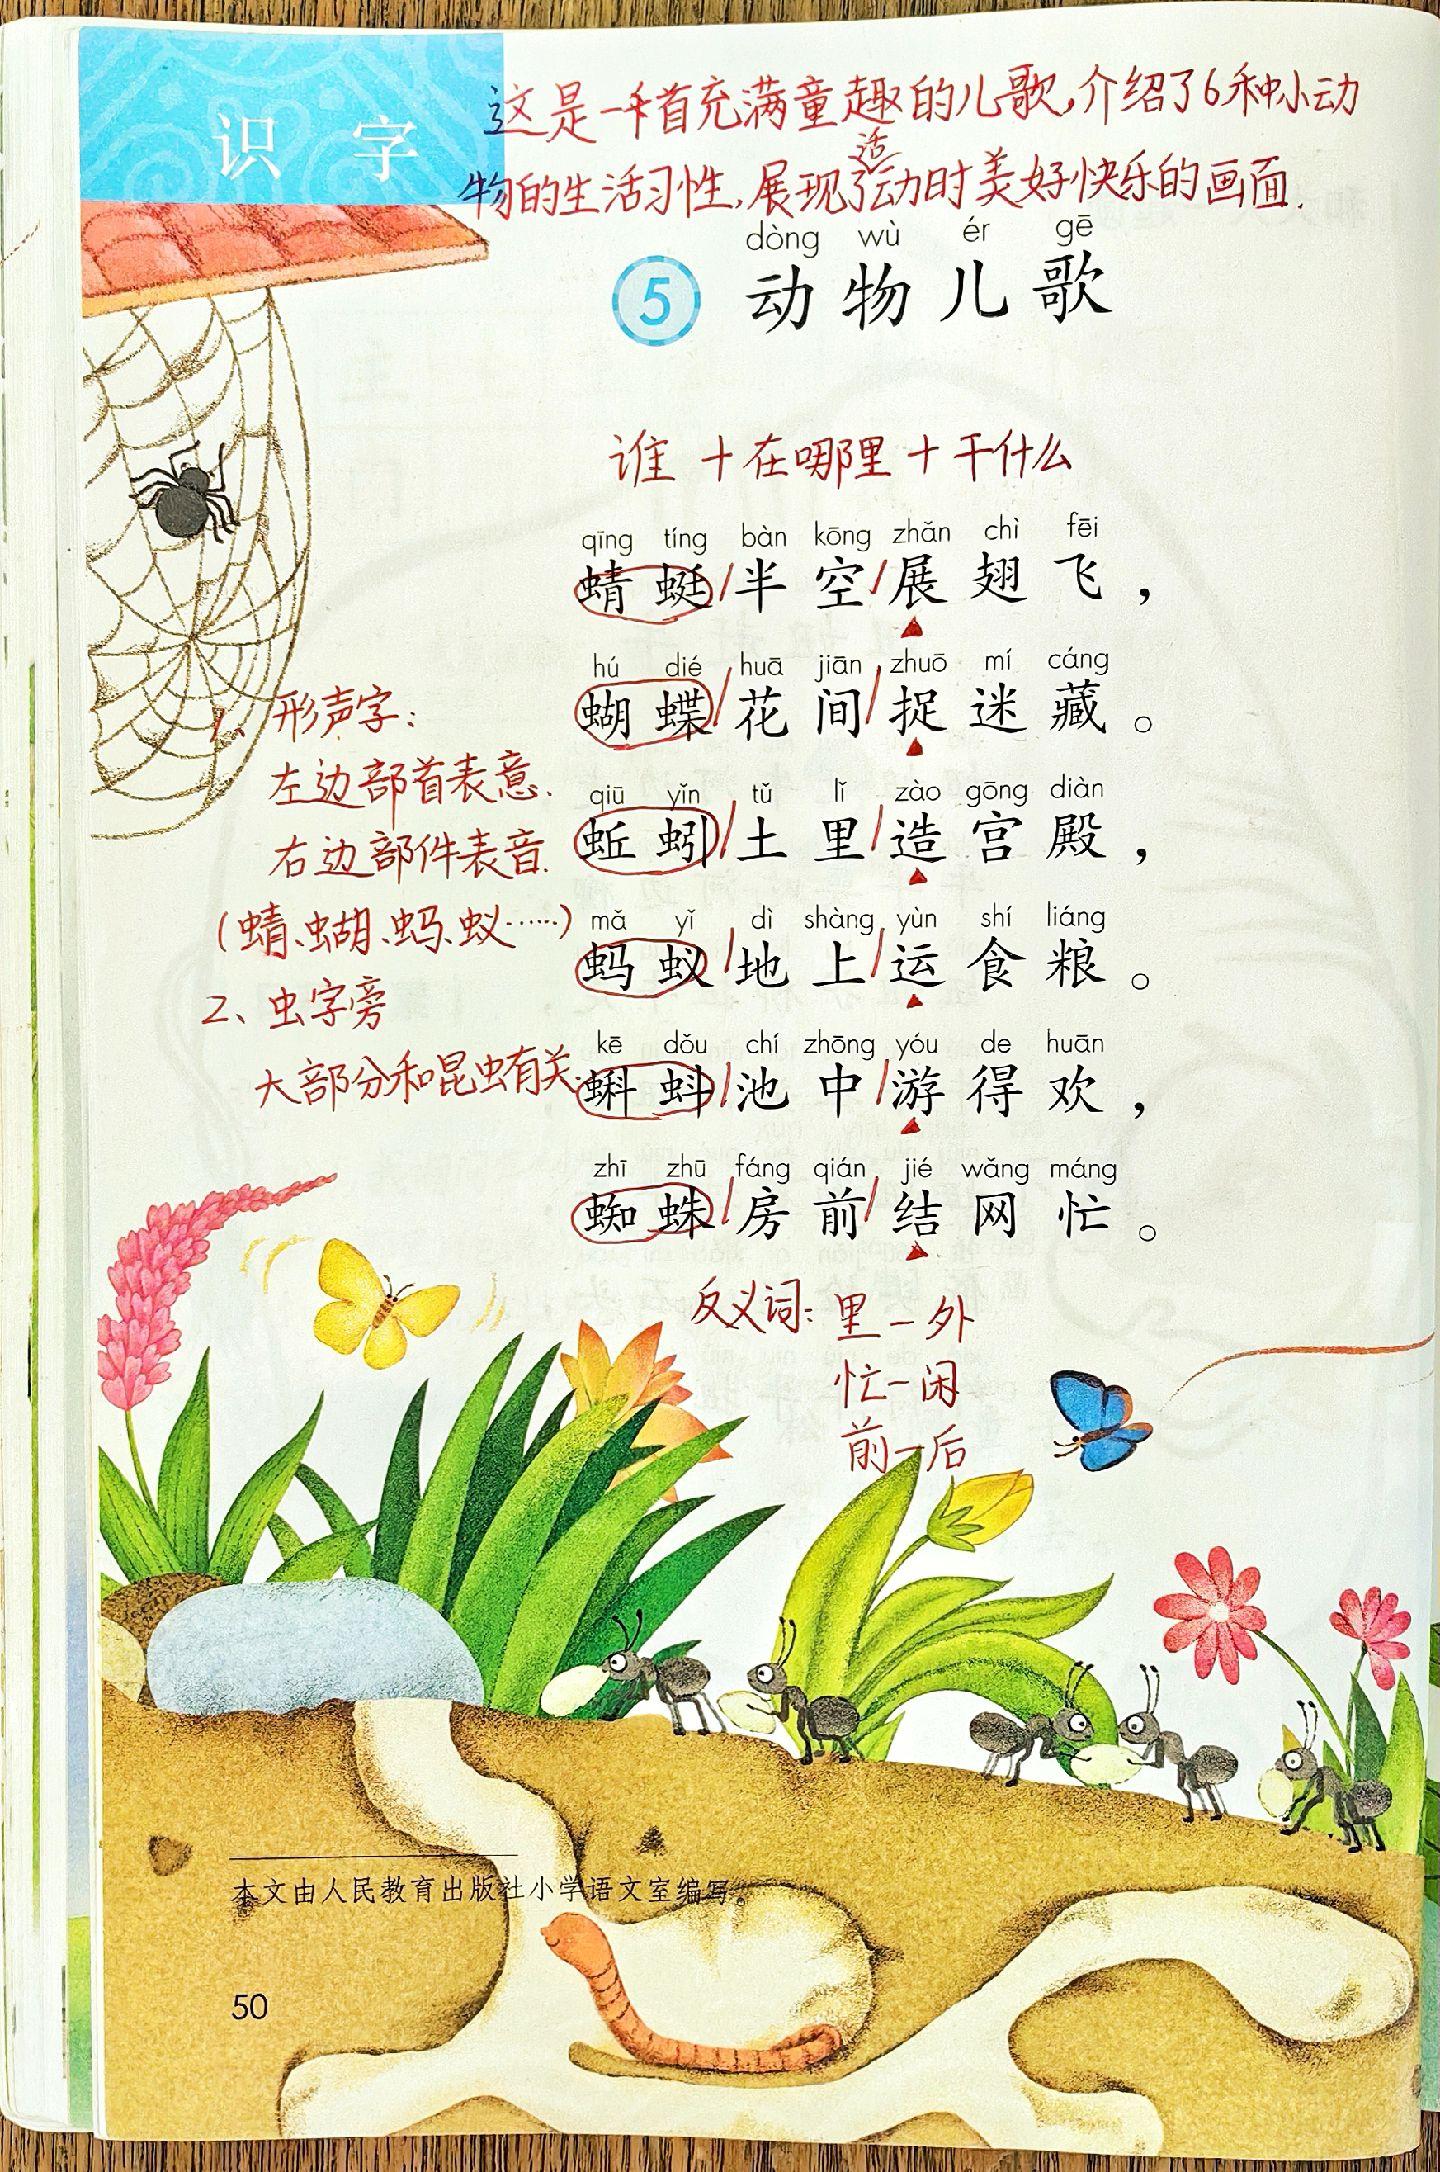 识 字
这是一首充满童趣的儿歌,介绍了6种小动
物的生活习性,展现了活动时美好快乐的画面.
dòng wù ér gē
5 动物儿歌
谁 + 在哪里 + 干什么
qīng tíng bàn kōng zhǎn chì fēi
蜻蜓/半空/展翅飞，
hú dié huā jiān zhuō mí cáng
蝴蝶/花间/捉迷藏。
qiū yǐn tǔ lǐ zào gōng diàn
蚯蚓/土里/造宫殿，
mǎ yǐ dì shàng yùn shí liáng
蚂蚁/地上/运食粮。
kē dǒu chí zhōng yóu de huān
蝌蚪/池中/游得欢，
zhī zhū fáng qián jié wǎng máng
蜘蛛/房前/结网忙。
1、形声字:
左边部首表意.
右边部件表音.
(蜻、蝴、蚂、蚁……)
2、虫字旁
大部分和昆虫有关.
反义词: 里—外
忙—闲
前—后
本文由人民教育出版社小学语文室编写。
50